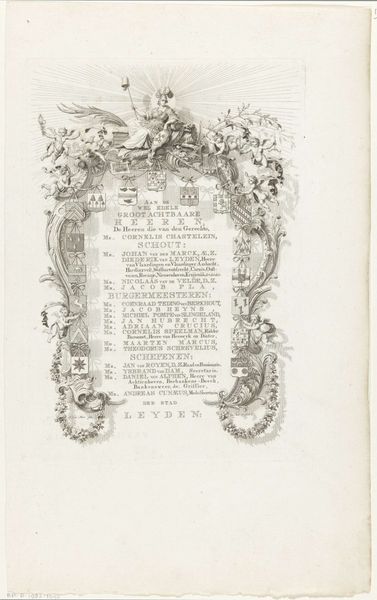 AAN DE
WEL EDELE
GROOT ACHTBAARE
HEEREN,
De Heeren die van den Gerechte,
Mr. CORNELIS CHASTELEIN,
SCHOUT:
Mr. JOHAN VAN DER MARCK, Æ.Z.
DIEDERIK VAN LEYDEN, Heere
van Vlaardingen en Vlaardinger Ambacht,
Mr. NICOLAAS VAN DE VELDE, D.Z.
Mr. JACOB PLA,
BURGERMEESTEREN:
Mr. COENRAAD TEDING VAN BERKHOUT,
Mr. JACOB HEYNS,
Mr. MICHIEL POMPE VAN SLINGELAND,
Mr. JAN HUBRECHT,
Mr. ADRIAAN CRUCIUS,
Mr. CORNELIS SPEELMAN, Ridder
Baronnet, Heere van
Mr. MAARTEN MARCUS,
Mr. THEODORUS SCHREVELIUS,
SCHEPENEN:
Mr. JAN VAN ROYEN, D.Z. Raad en Pensionaris.
Mr. YSBRAND VAN DAM, Secretaris.
Mr. DANIEL VAN ALPHEN, Heere van
Griffier,
Mr. ANDREAS CUNÆUS, Mede Secretaris.
DER STAD
LEYDEN: